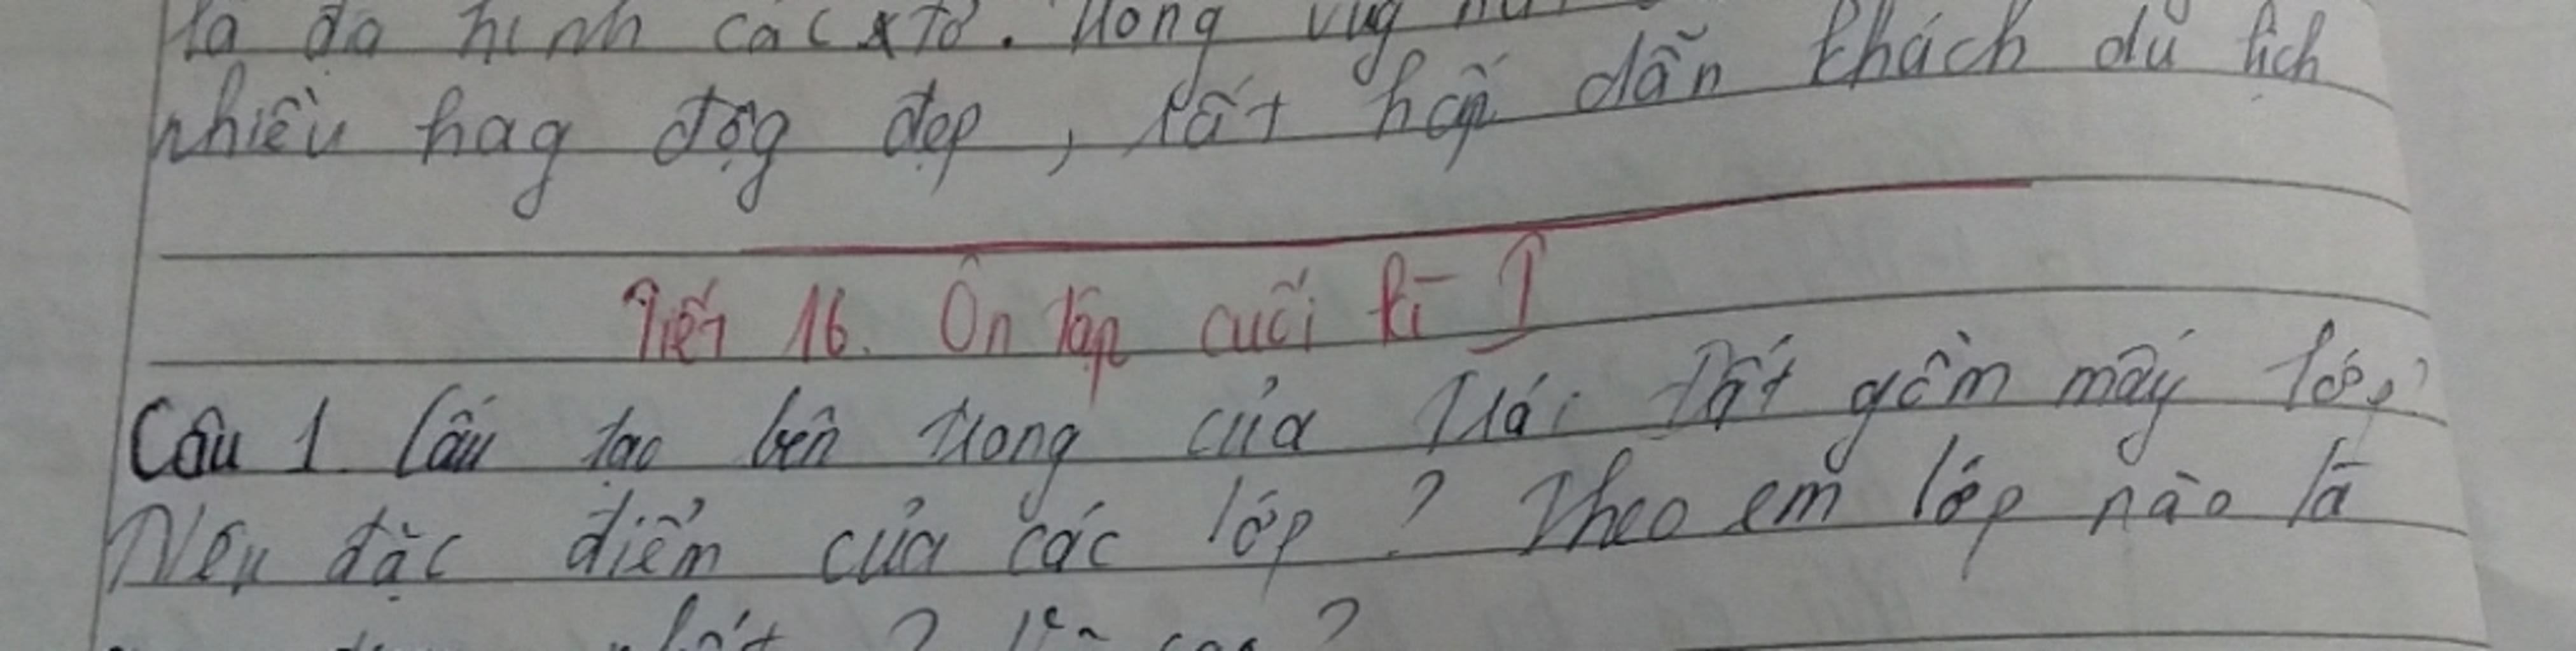 là địa hình các xtơ. Trong vùg núi
nhiều hag độg đẹp, rất hấp dẫn khách du lịch
Tiết 16. Ôn tập cuối kì I
Câu 1. Cấu tạo bên trong của Trái Đất gồm mấy lớp?
Nêu đặc điểm của các lớp? Theo em lớp nào là
nhất? Vì sao?